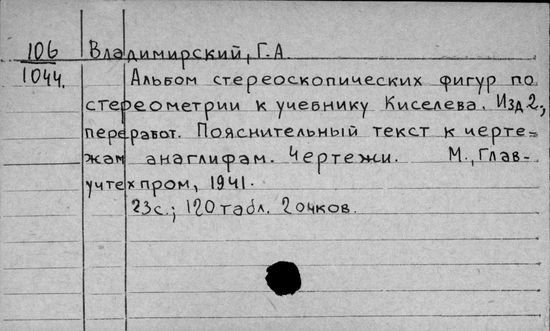 106 Владимирский, Г.А
1044. Альбом стереоскопических фигур по
стереометрии к учебнику Киселева. Изд 2.,
переработ. Пояснительный текст к черте=
жам анаглифам. Чертежи. М., Глав-
учтехпром, 1941.
23с.; 120 табл. 2 очков.